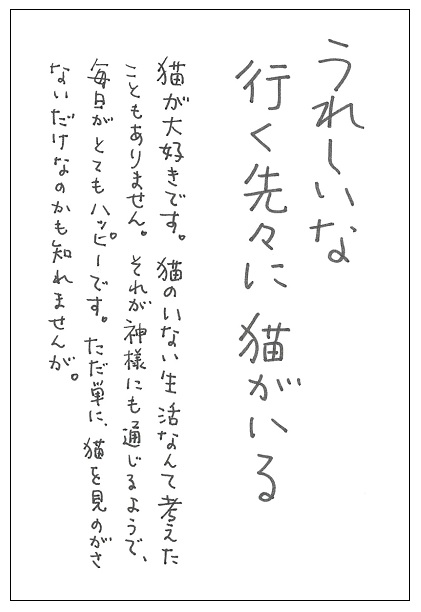 うれしいな
行く先々に 猫がいる
猫が大好きです。猫のいない生活なんて考えた
こともありません。それが神様にも通じるようで、
毎日がとてもハッピーです。ただ単に、猫を見のがさ
ないだけなのかも知れませんが。